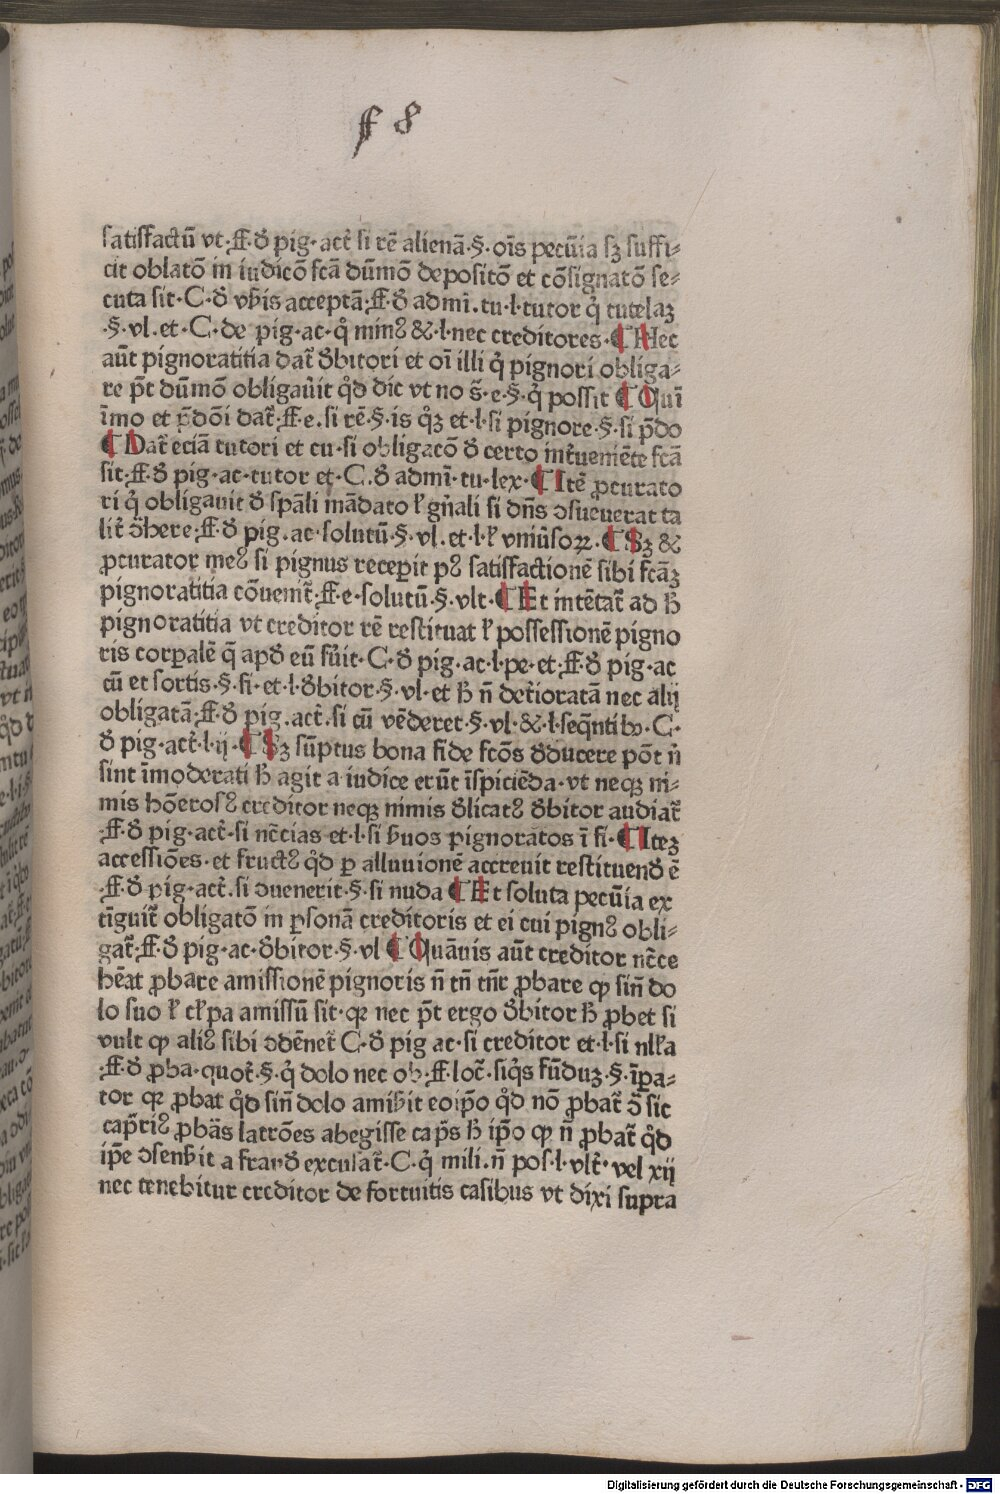 ff 8
satisfactū vt·ff·ꝺ̄ pig·act̄ si rē alienā·§·oīs pecūia sꝫ suffi⸗
cit oblatō in iudicō fcā dūmō depositō et cōsignatō se⸗
cuta sit·C·ꝺ̄ vb̄is acceptā·ff·ꝺ̄ admī·tu·l·tutor q̇ tutelaꝫ
·§·vl·et·C·de pig·ac·q̇ min⁹ &·l·nec creditores·¶ Hec
aūt pignoratitia dat̄ ꝺ̄bitori et oī illi q̇ pignori obliga⸗
re p̄t dūmō obligaūit qd̄ dic vt no s̄·e·§·q̇ possit ¶ Quī
īmo et p̄dōi dat̄·ff·e·si rē·§·is q̇ꝫ et·l·si pignore·§·si p̄do
¶ Dat̄ eciā tutori et cu·si obligacō ꝺ̄ certo int̄ueniēte fcā
sit·ff·ꝺ̄ pig·ac·tutor et·C·ꝺ̄ admī·tu·lex·¶ Itē ꝓcurato
ri q̇ obligauit ꝺ̄ spāli mādato ł gn̄ali si dn̄s ↄsueuerat ta
lit̄ ↄ̄here·ff·ꝺ̄ pig·ac·solutū·§·vl·et·l·ł vniūsoꝝ·¶ Sꝫ &
ꝓcurator me⁹ si pignus receꝑit p⁹ satisfactionē sibi fcāꝫ
pignoratitia cōuenit̄·ff·e·solutū·§·vlt·¶ Et intētat̄ ad ħ
pignoratitia vt creditor rē restituat ł possessionē pigno
ris corꝑalē q̄ apd̄ eū fūit·C·ꝺ̄ pig·ac·l·pe·et·ff·ꝺ̄ pig·ac
cū et sortis·§·fi·et·l·ꝺ̄bitor·§·vl·et ħ n̄ det̄ioratā nec alij
obligatā·ff·ꝺ̄ pig·act̄·si cū vēderet·§·vl·&·l·seq̄ntibꝰ·C·
ꝺ̄ pig·act̄·l·ij·¶ Sꝫ sūptus bona fide fcōs ꝺ̄ducere pōt n̄
sint īmoderati ħ agit a iudice erūt īspiciēda·vt neqꝫ ni⸗
mis hōeros⁹ creditor neqꝫ nimis ꝺ̄licat⁹ ꝺ̄bitor audiat̄
·ff·ꝺ̄ pig·act̄·si nēcias et·l·si b̄uos pignoratos ī fi·¶ Iteꝫ
accessiōes·et fruct⁹ qd̄ ꝑ alluuionē accreuit restituenꝺ̄ ē
·ff·ꝺ̄ pig·act̄·si ↄuenerit·§·si nuda ¶ Et soluta pecūia ex
tīguit̄ obligatō in ꝑsonā creditoris et ei cui pign⁹ obli⸗
gat̄·ff·ꝺ̄ pig·ac·ꝺ̄bitor·§·vl ¶ Quāuis aūt creditor nēce
hēat ꝓbare amissionē pignoris n̄ tn̄ tn̄r ꝓbare ꝙ sin̄ do
lo suo ł cłpa amissū sit·qꝛ nec p̄t ergo ꝺ̄bitor ħ ꝓbet si
vult ꝙ ali⁹ sibi ↄdēnet̄ C·ꝺ̄ pig ac·si creditor et·l·si nlła
·ff·ꝺ̄ ꝓba·quot̄·§·q̇ dolo nec ob·ff·loc̄·siq̇s fūduꝫ·§·īꝑa⸗
tor qꝛ ꝓbat qd̄ sin̄ dolo amib̄it eoip̄o qd̄ nō ꝓbat̄ ↄ̄ sic
cap̄ri⁹ ꝓbās latrōes abegisse cap̄s ħ ip̄o ꝙ n̄ ꝓbat̄ qd̄
ip̄e ↄsenb̄it a frauꝺ̄ excusat̄·C·q̇ mili·n̄ pos·l·vlt̄·vel xij
nec tenebitur creditor de fortuitis casibus vt dixi supra
Digitalisierung gefördert durch die Deutsche Forschungsgemeinschaft - DFG